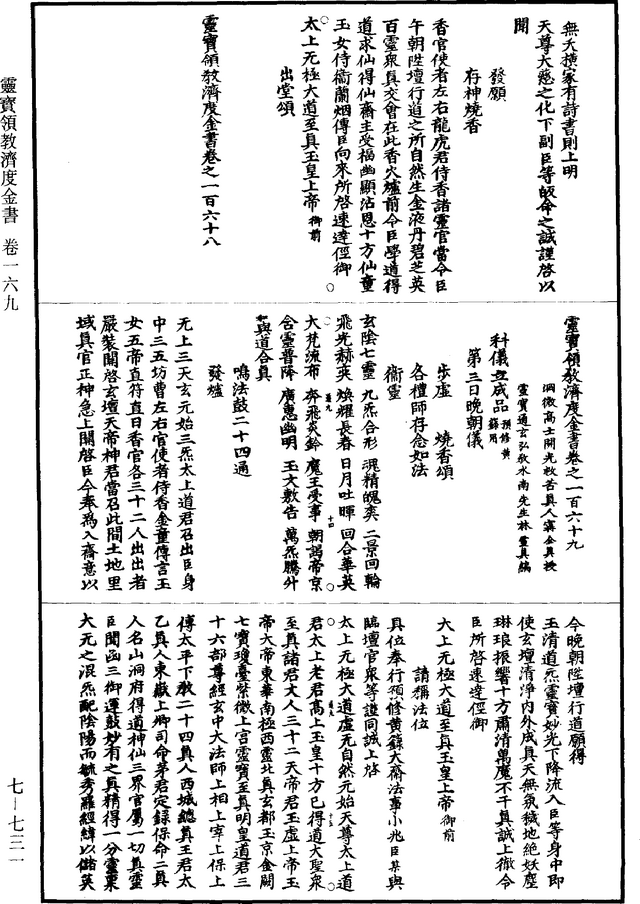 靈寶領教濟度金書 卷一六九
七－七三一
無夭橫家有詩書則上明
天尊大慈之化下副臣等皈命之誠謹啓以
聞
發願
存神燒香
香官使者左右龍虎君侍香諸靈官當令臣
午朝陞壇行道之所自然生金液丹碧芝英
百靈衆真交會在此香火爐前令臣學道得
道求仙得仙齋主受福幽顯沾恩十方仙童
玉女侍衛蘭烟傳臣向來所啓速達徑御
太上无極大道至真玉皇上帝御前
出堂頌
靈寶領教濟度金書卷之一百六十八
靈寶領教濟度金書卷之一百六十九
洞微高士開光救苦真人甯全真授
靈寶通玄弘教水南先生林靈真編
科儀立成品預修黃籙用
第三日晚朝儀
步虛 燒香頌
各禮師存念如法
衛靈
玄陰七靈 九炁合形 魂精魄爽 二景回輪
飛光赫奕 煥耀長春 日月吐暉 回合華英
大梵流布 奔飛炎鈴 魔王受事 朝謁帝京
含靈普蔭 廣惠幽明 玉文敷告 萬炁騰外
與道合真
鳴法鼓二十四通
發爐
无上三天玄元始三炁太上道君召出臣身
中三五功曹左右官使者侍香金童傳言玉
女五帝直符直日香官各三十二人出出者
嚴裝關啓玄壇天帝神君當召此間土地里
域真官正神急上關啓臣今奉為入齋意以
今晚朝陞壇行道願得
玉清道炁靈寶妙光下降流入臣等身中即
使玄壇清淨內外成真天無氛穢地絕妖塵
琳琅振響十方肅清萬魔不干真誠上徹令
臣所啓速達徑御
太上无極大道至真玉皇上帝御前
請稱法位
具位奉行預修黃籙大齋法事小兆臣某與
臨壇官衆等謹同誠上啓
太上无極大道虛无自然元始天尊太上道
君太上老君高上玉皇十方已得道大聖衆
至真諸君丈人三十二天帝君玉虛上帝玉
帝大帝東華南極西靈北真玄都玉京金闕
七寶瓊臺紫微上宮靈寶至真明皇道君三
十六部尊經玄中大法師上相上宰上保上
傅太平下教二十四真人西城總真王君太
乙真人東嶽上卿司命茅君定籙保命二真
人名山洞府得道神仙三界官屬一切真靈
臣聞函三御運啟妙有之真精得一分靈稟
大元之混炁配陰陽而毓秀羅經緯以儲英